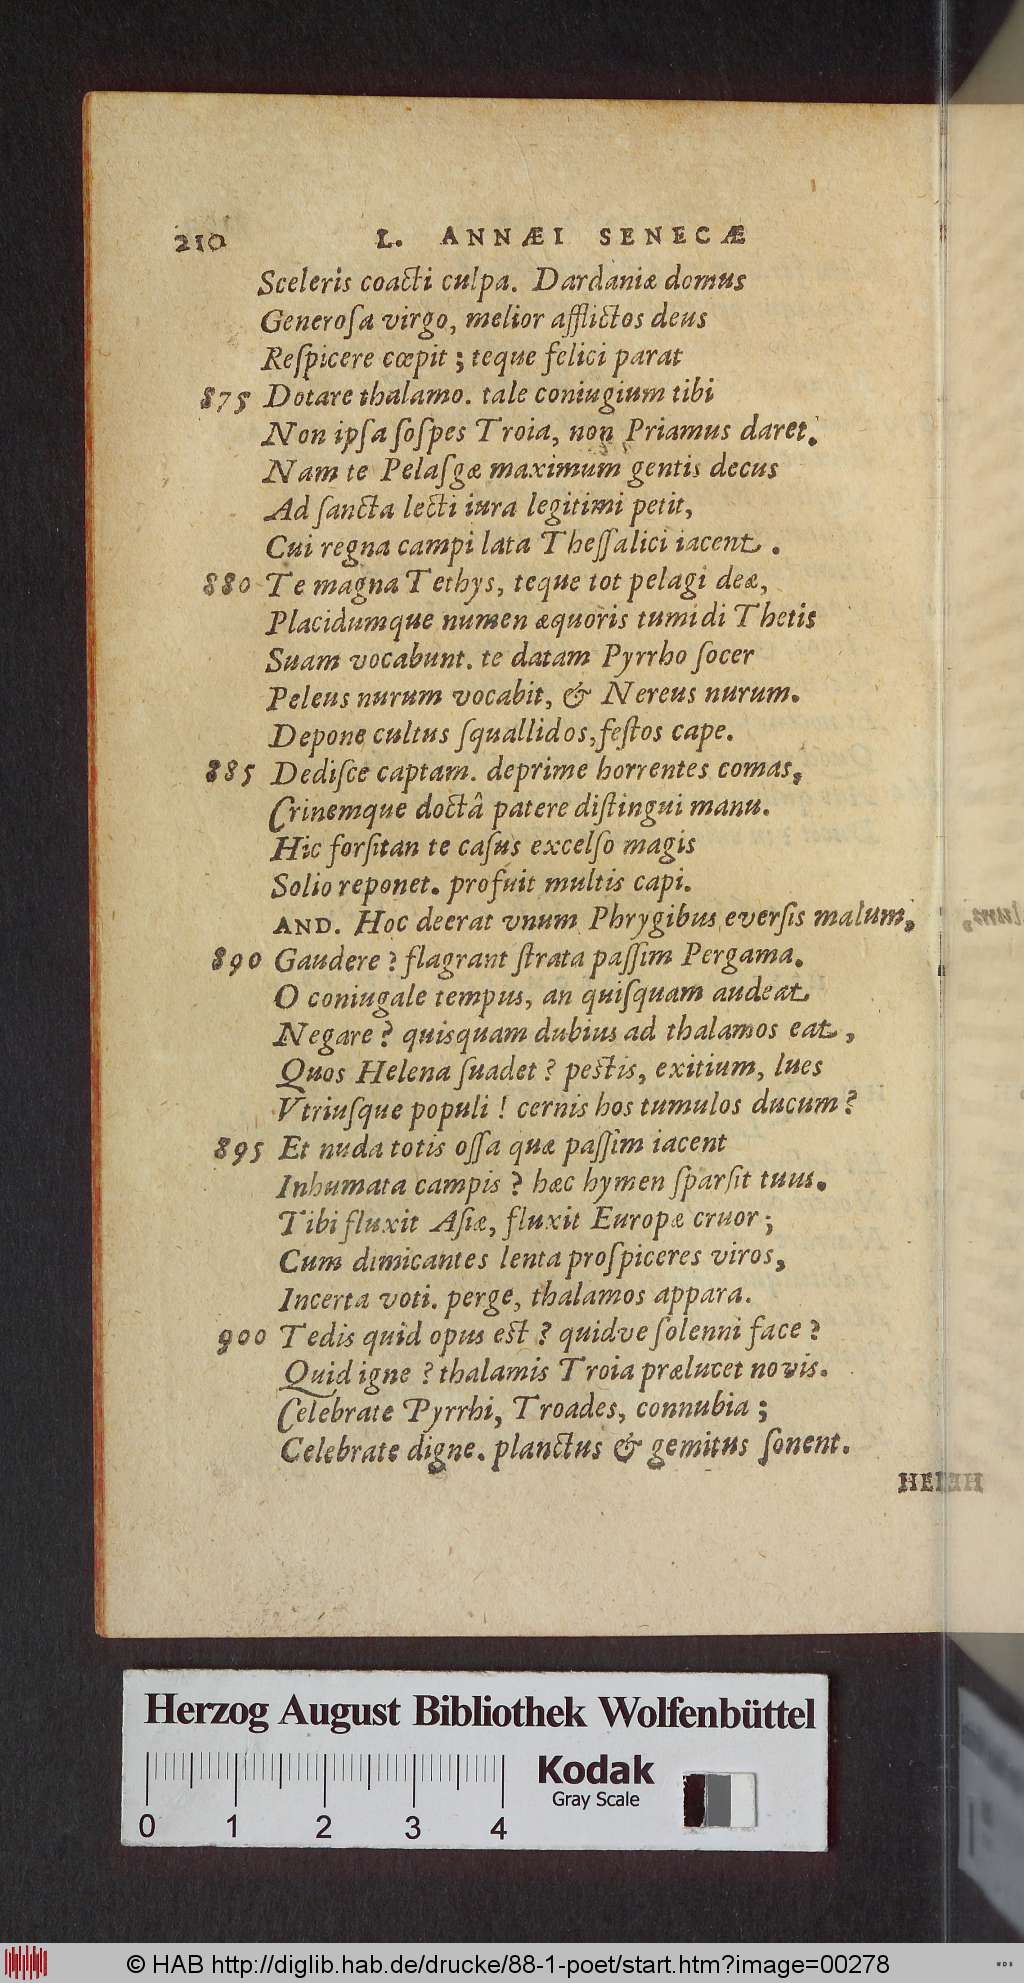 210 L. ANNÆI SENECÆ
Sceleris coacti culpa. Dardaniæ domus
Generoſa virgo, melior afflictos deus
Reſpicere cœpit ; teque felici parat
875 Dotare thalamo. tale coniugium tibi
Non ipſa ſoſpes Troia, non Priamus daret.
Nam te Pelaſgæ maximum gentis decus
Ad ſancta lecti iura legitimi petit,
Cui regna campi lata Theſſalici iacent.
880 Te magna Tethys, teque tot pelagi deæ,
Placidumque numen æquoris tumidi Thetis
Suam vocabunt. te datam Pyrrho ſocer
Peleus nurum vocabit, & Nereus nurum.
Depone cultus ſquallidos, feſtos cape.
885 Dediſce captam. deprime horrentes comas,
Crinemque doctâ patere diſtingui manu.
Hic forſitan te caſus excelſo magis
Solio reponet. profuit multis capi.
AND. Hoc deerat vnum Phrygibus everſis malum,
890 Gaudere ? flagrant ſtrata paſſim Pergama.
O coniugale tempus, an quiſquam audeat
Negare ? quisquam dubius ad thalamos eat,
Quos Helena ſuadet ? pestis, exitium, lues
Vtriuſque populi ! cernis hos tumulos ducum ?
895 Et nuda totis oſſa quæ paſſim iacent
Inhumata campis ? hæc hymen ſparſit tuus.
Tibi fluxit Aſiæ, fluxit Europæ cruor ;
Cum dimicantes lenta proſpiceres viros,
Incerta voti. perge, thalamos appara.
900 Tedis quid opus est ? quidve ſolenni face ?
Quid igne ? thalamis Troia prælucet novis.
Celebrate Pyrrhi, Troades, connubia ;
Celebrate digne. planctus & gemitus ſonent.
Herzog August Bibliothek Wolfenbüttel
Kodak
Gray Scale
0 1 2 3 4
© HAB http://diglib.hab.de/drucke/88-1-poet/start.htm?image=00278